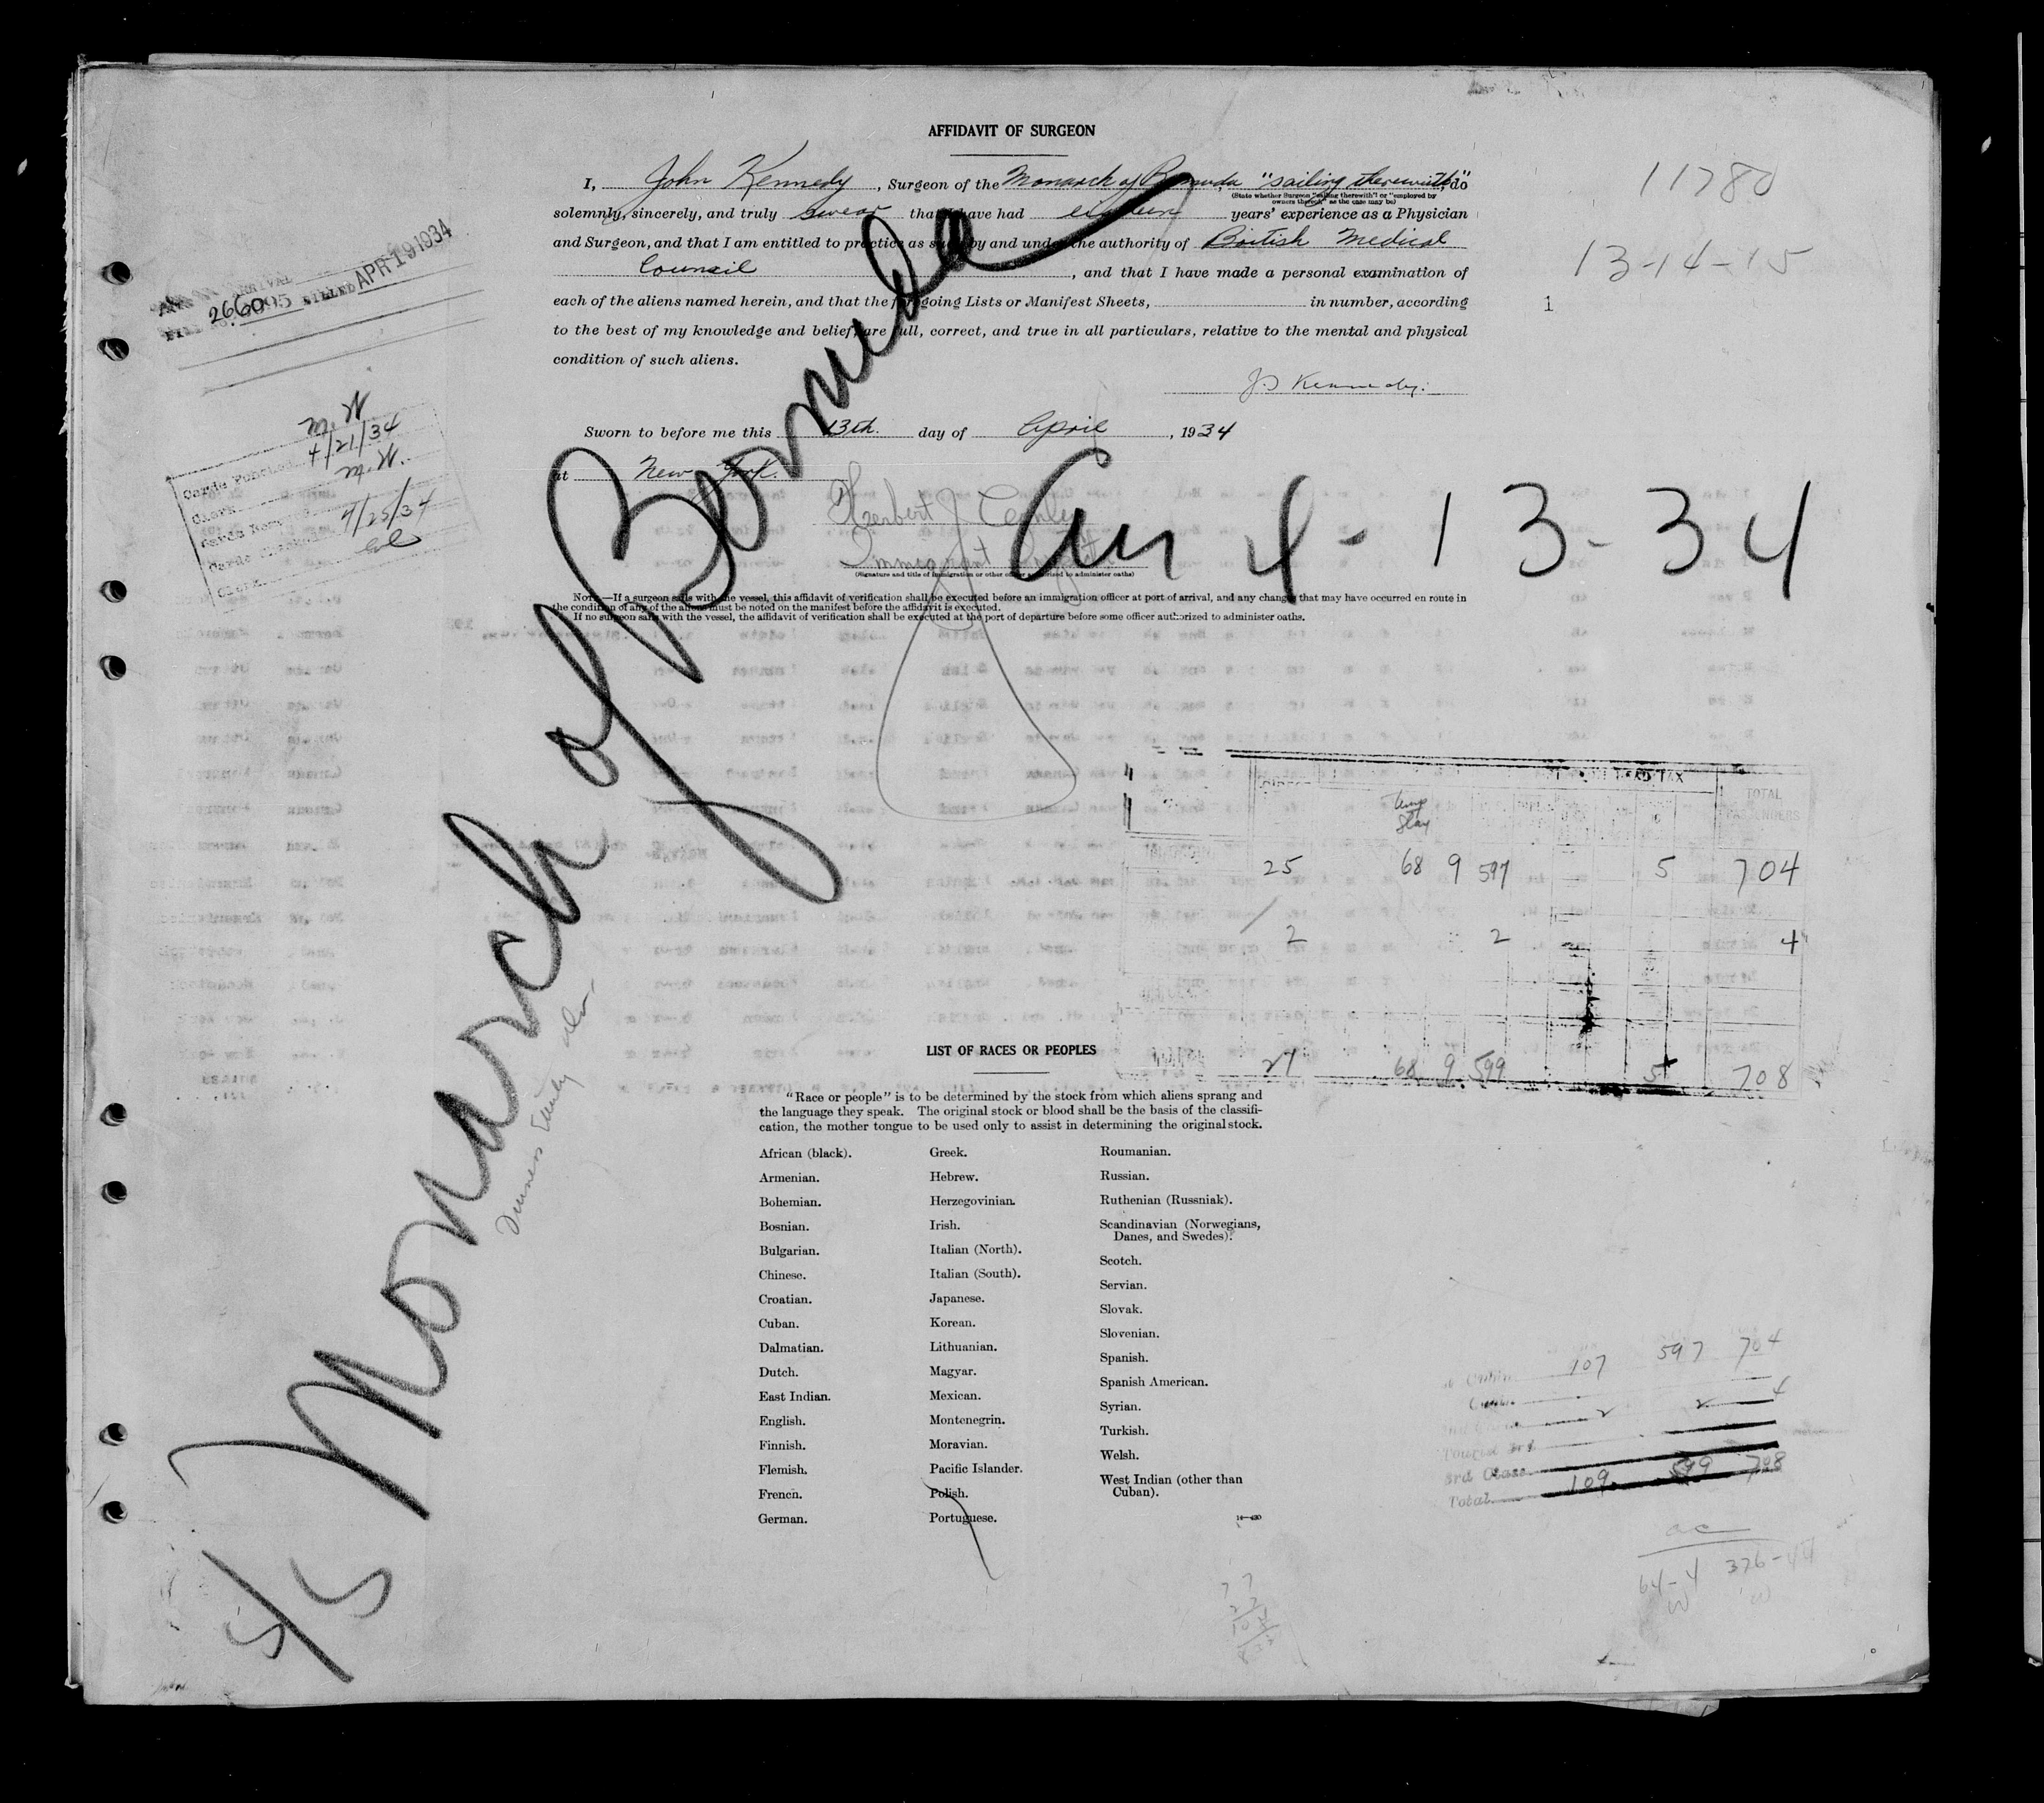 AFFIDAVIT OF SURGEON
I, John Kennedy, Surgeon of the Monarch of Bermuda, "sailing therewith" do
(State whether Surgeon "sailing therewith" or "employed by
owners thereof," as the case may be)
solemnly, sincerely, and truly swear that I have had years' experience as a Physician
and Surgeon, and that I am entitled to practice as such by and under the authority of British Medical
Council, and that I have made a personal examination of
each of the aliens named herein, and that the foregoing Lists or Manifest Sheets, in number, according
to the best of my knowledge and belief, are full, correct, and true in all particulars, relative to the mental and physical
condition of such aliens.
J. Kennedy.
Sworn to before me this 13th. day of April, 1934
at New York.
Herbert J.
Immigrant
(Signature and title of immigration or other officer authorized to administer oaths)
NOTE.—If a surgeon sails with the vessel, this affidavit of verification shall be executed before an immigration officer at port of arrival, and any changes that may have occurred en route in
the condition of any of the aliens must be noted on the manifest before the affidavit is executed.
If no surgeon sails with the vessel, the affidavit of verification shall be executed at the port of departure before some officer authorized to administer oaths.
11780
13-14-15
1
ARRIVAL
26605 KILLED APR 19 1934
M.W
Cards Punched 4/21/34
Clerk M.W.
4/25/34
Clerk
S/S Monarch of Bermuda
Arr 4-13-34
HEAD TAX
TOTAL
PASSENGERS
Temp
Stay
25 68 9 597 5 704
2 2 4
27 68 9 599 5 708
LIST OF RACES OR PEOPLES
"Race or people" is to be determined by the stock from which aliens sprang and
the language they speak. The original stock or blood shall be the basis of the classifi-
cation, the mother tongue to be used only to assist in determining the original stock.
African (black).
Armenian.
Bohemian.
Bosnian.
Bulgarian.
Chinese.
Croatian.
Cuban.
Dalmatian.
Dutch.
East Indian.
English.
Finnish.
Flemish.
French.
German.
Greek.
Hebrew.
Herzegovinian.
Irish.
Italian (North).
Italian (South).
Japanese.
Korean.
Lithuanian.
Magyar.
Mexican.
Montenegrin.
Moravian.
Pacific Islander.
Polish.
Portuguese.
Roumanian.
Russian.
Ruthenian (Russniak).
Scandinavian (Norwegians,
Danes, and Swedes).
Scotch.
Servian.
Slovak.
Slovenian.
Spanish.
Spanish American.
Syrian.
Turkish.
Welsh.
West Indian (other than
Cuban).
Cabin 107 597 704
2 2 4
Tourist 3rd
3rd Class
Total 109 599 708
64-4 376-44